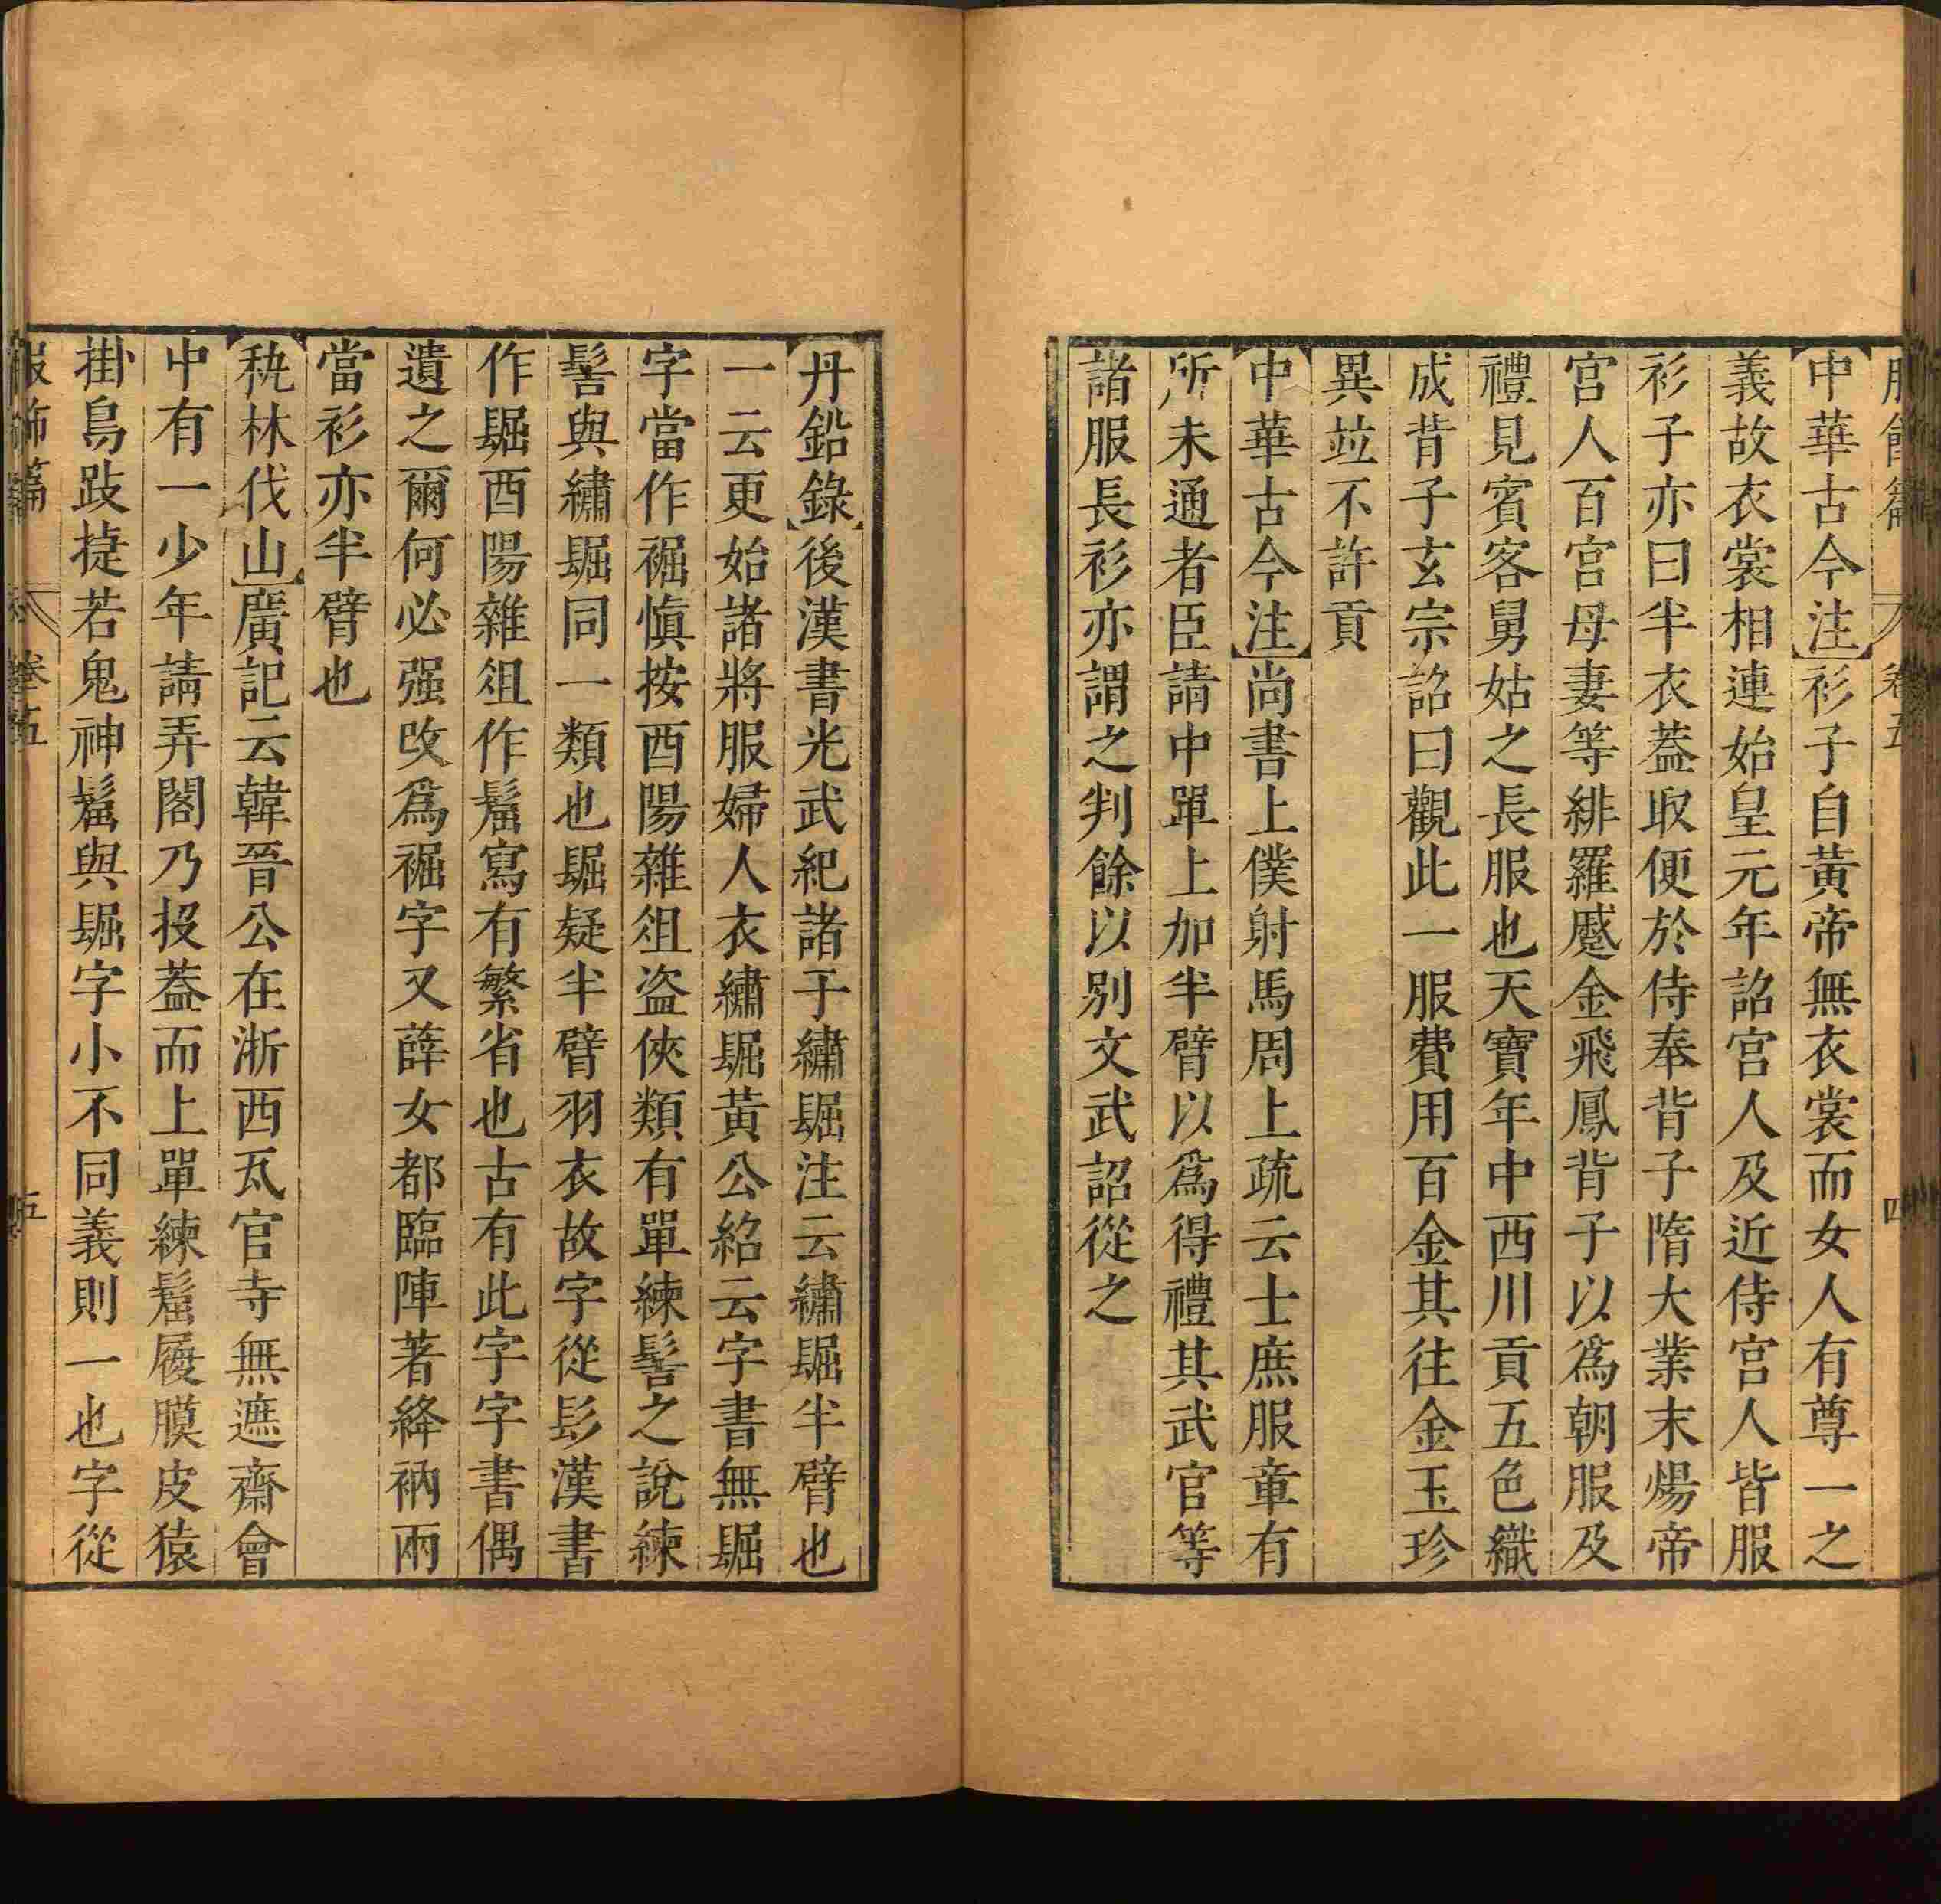 服飾篇 卷五 四
中華古今注衫子自黃帝無衣裳而女人有尊一之
義故衣裳相連始皇元年詔宮人及近侍宮人皆服
衫子亦曰半衣葢取便於侍奉背子隋大業末煬帝
宮人百官母妻等緋羅蹙金飛鳳背子以為朝服及
禮見賓客舅姑之長服也天寶年中西川貢五色織
成背子玄宗詔曰觀此一服費用百金其往金玉珍
異竝不許貢
中華古今注尚書上僕射馬周上疏云士庶服章有
所未通者臣請中單上加半臂以為得禮其武官等
諸服長衫亦謂之判餘以別文武詔從之
丹鉛錄後漢書光武紀諸于繡䘿注云繡䘿半臂也
一云更始諸將服婦人衣繡䘿黃公紹云字書無䘿
字當作裾愼按酉陽雜俎盜俠類有單練髻之說練
髻與繡䘿同一類也䘿疑半臂羽衣故字從髟漢書
作䘿酉陽雜俎作鬜寫有繁省也古有此字字書偶
遺之爾何必强改爲裾字又薛女都臨陣著絳衲兩
當衫亦半臂也
秇林伐山廣記云韓晉公在浙西瓦官寺無遮齋會
中有一少年請弄閣乃投葢而上單練鬜履膜皮猿
掛鳥跂捷若鬼神鬜與䘿字小不同義則一也字從
服飾篇 卷五 五